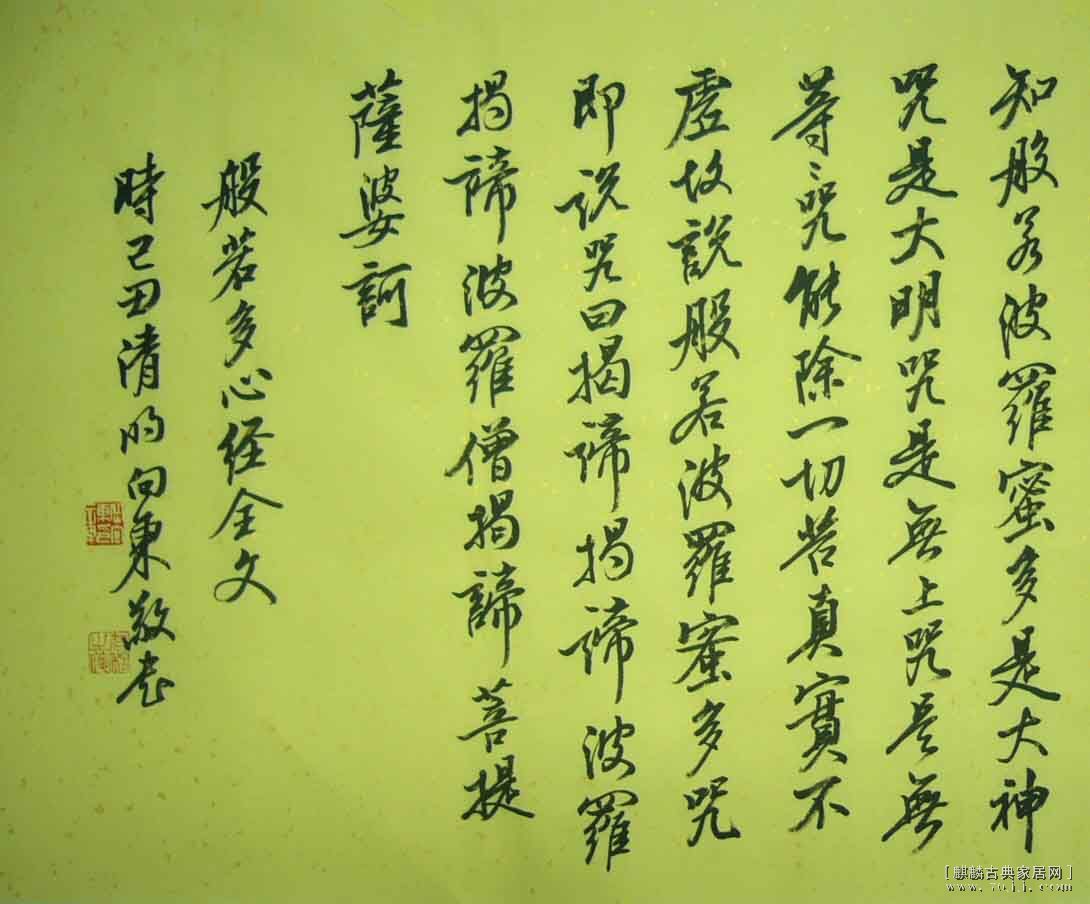 知般若波羅蜜多是大神
咒是大明咒是無上咒是無
等〻咒能除一切苦真實不
虛故說般若波羅蜜多咒
即說咒曰揭諦揭諦波羅
揭諦波羅僧揭諦菩提
薩婆訶
般若多心经全文
時己丑清明向東敬书
[麒麟古典家居网]
www.7ojj.com